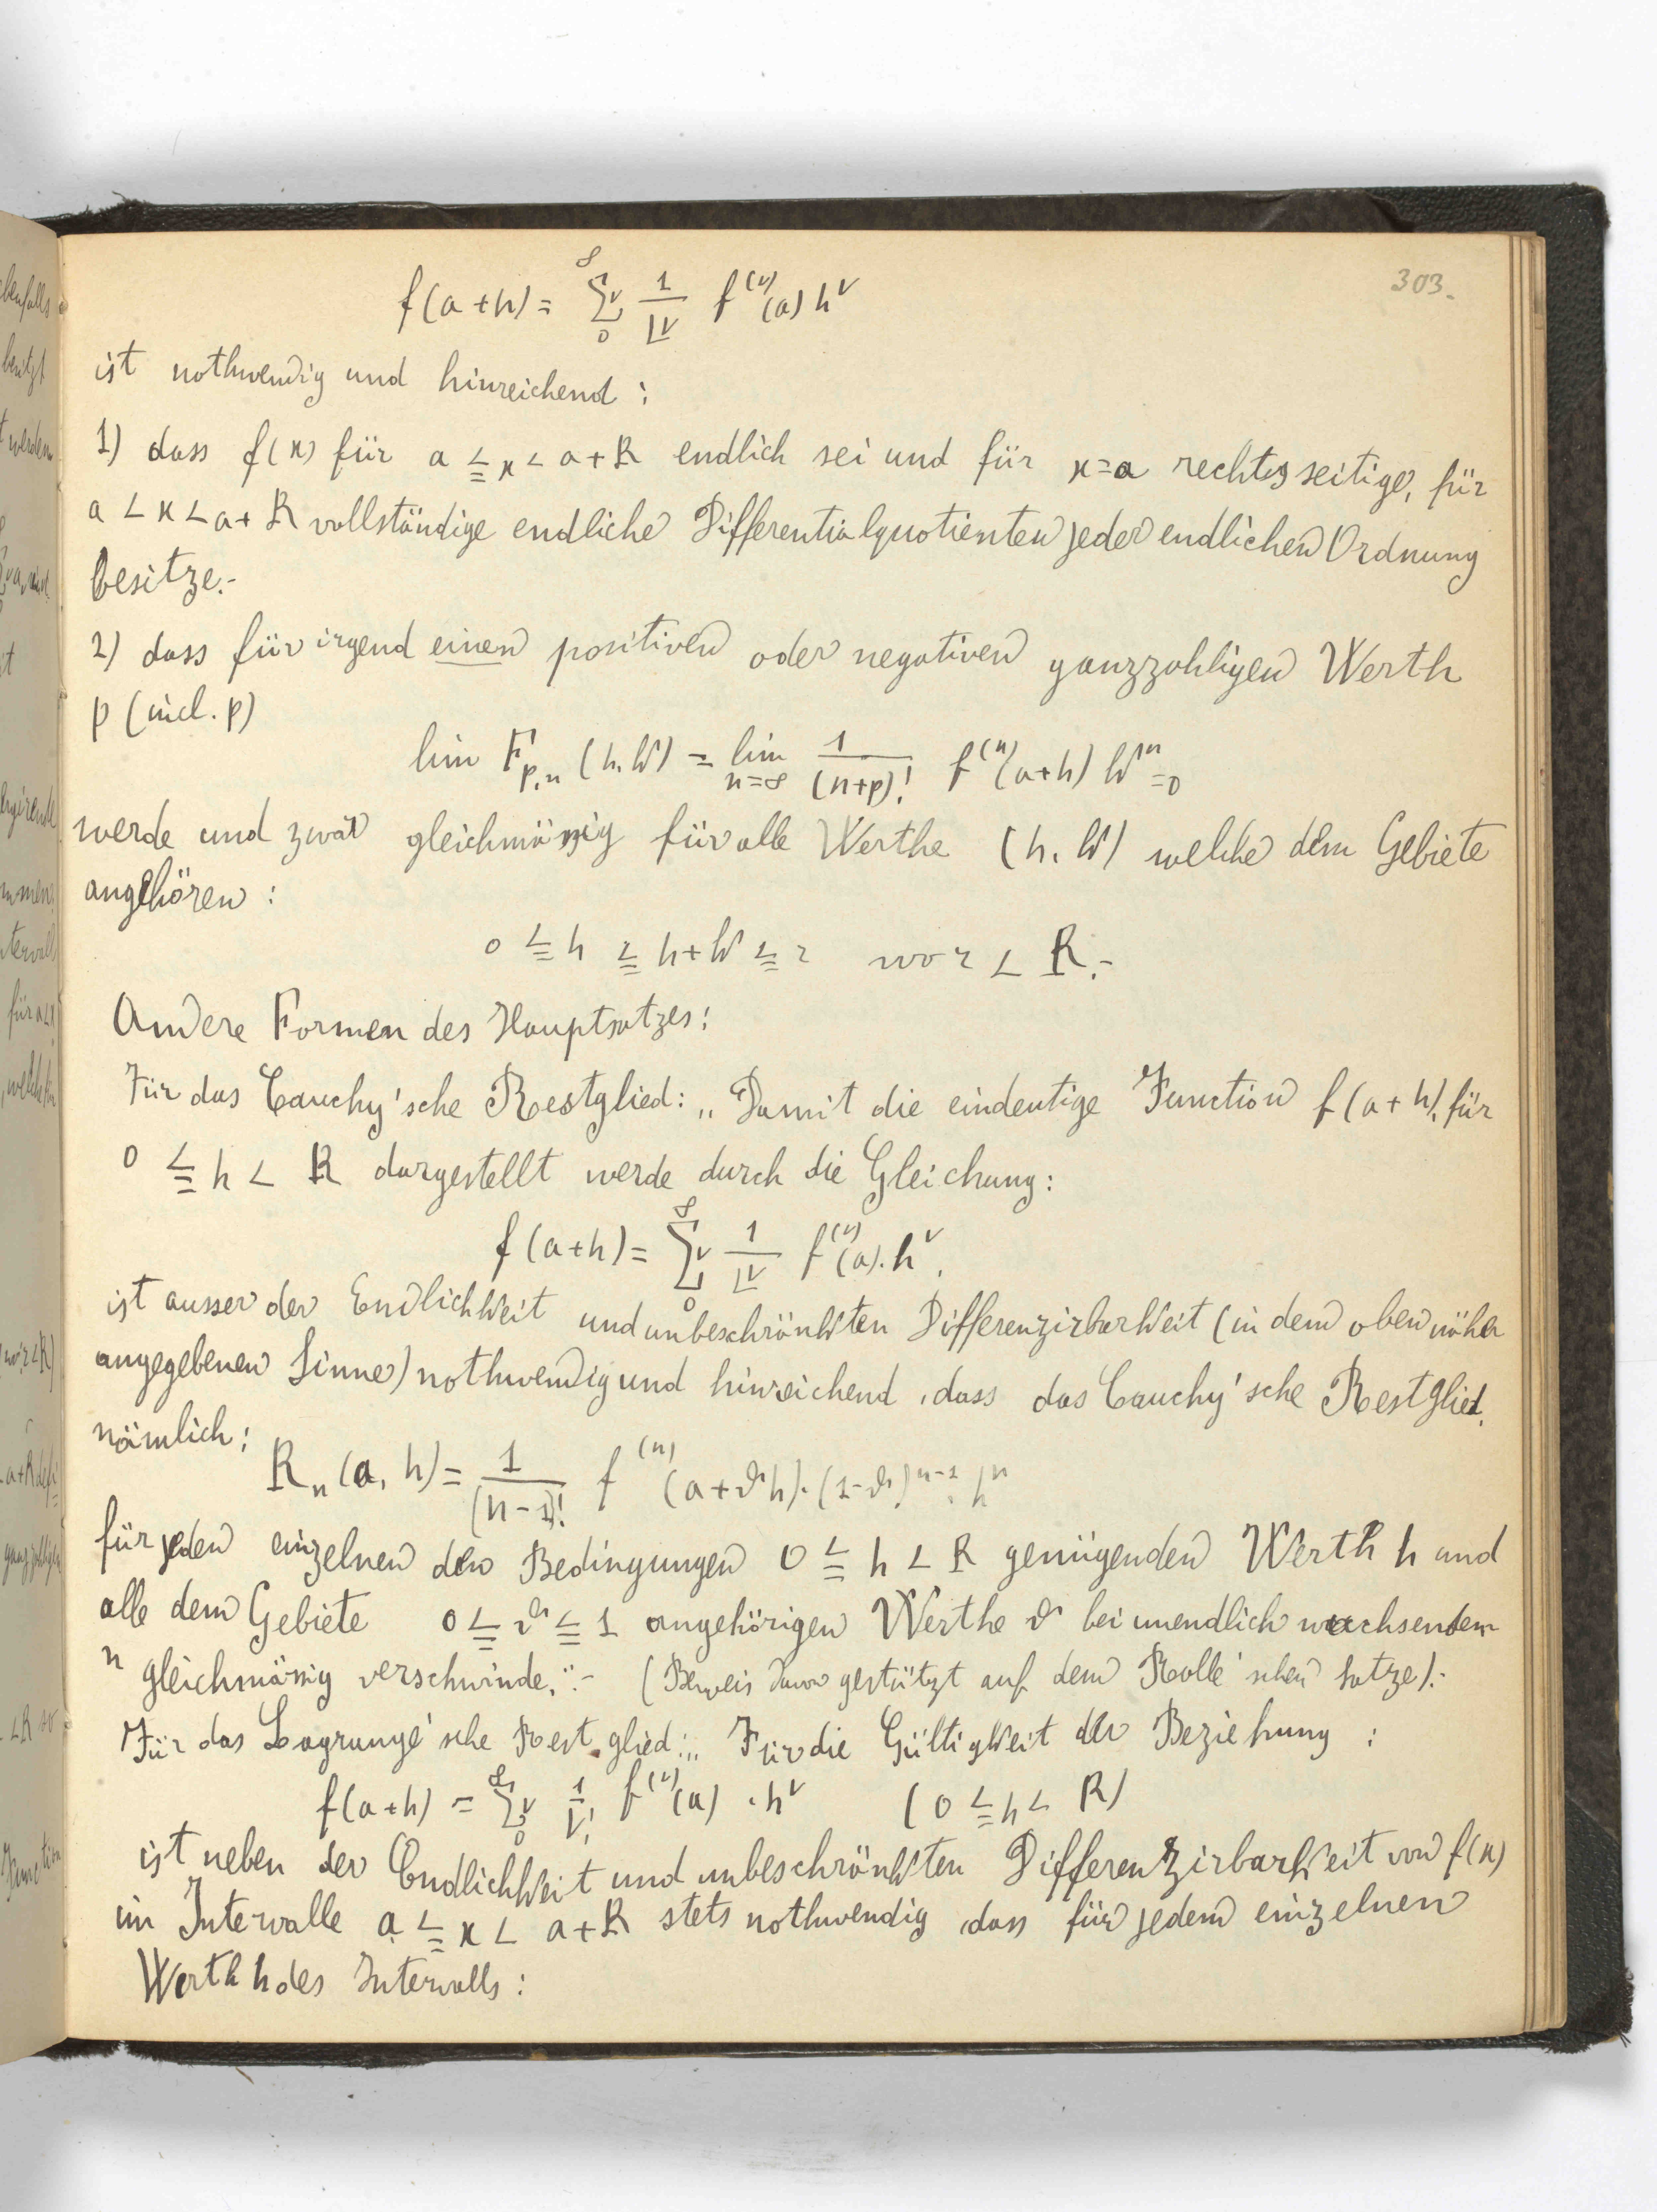 303.
f(a+h) = ∞ Σν 0 1/|ν f^(ν)(a) h^ν
ist nothwendig und hinreichend:
1) dass f(x) für a ≦ x < a+R endlich sei und für x=a rechtsseitige, für
a < x < a+R vollständige endliche Differentialquotienten jeder endlichen Ordnung
besitze.-
2) dass für irgend einen positiven oder negativen ganzzahligen Werth
p (incl. p)
lim F_p,n (h, k) = lim n=∞ 1/(n+p)! f^(n)(a+h) k^n = 0
werde und zwar gleichmässig für alle Werthe (h, k) welche dem Gebiete
angehören:
0 ≦ h ≦ h+k ≦ r wo r < R.-
Andere Formen des Hauptsatzes:
Für das Cauchy'sche Restglied: „Damit die eindeutige Function f(a+h), für
0 ≦ h < R dargestellt werde durch die Gleichung:
f(a+h) = ∞ Σν 0 1/|ν f^(ν)(a). h^ν,
ist ausser der Endlichkeit und unbeschränkten Differenzirbarkeit (in dem oben näher
angegebenen Sinne) nothwendig und hinreichend, dass das Cauchy'sche Restglied,
nämlich:
R_n (a, h) = 1/(n-1)! f^(n) (a+ϑh). (1-ϑ)^n-1. h^n
für jeden einzelnen den Bedingungen 0 ≦ h < R genügenden Werth h und
alle dem Gebiete 0 ≦ ϑ ≦ 1 angehörigen Werthe ϑ bei unendlich wachsendem
n gleichmässig verschwinde."- (Beweis davon gestützt auf dem Rolle'schen Satze).-
Für das Lagrange'sche Restglied: „Für die Gültigkeit der Beziehung:
f(a+h) = ∞ Σν 0 1/ν! f^(ν)(a) . h^ν (0 ≦ h < R)
ist neben der Endlichkeit und unbeschränkten Differenzirbarkeit von f(x)
im Intervalle a ≦ x < a+R stets nothwendig, dass für jedem einzelnen
Werth h des Intervalls: